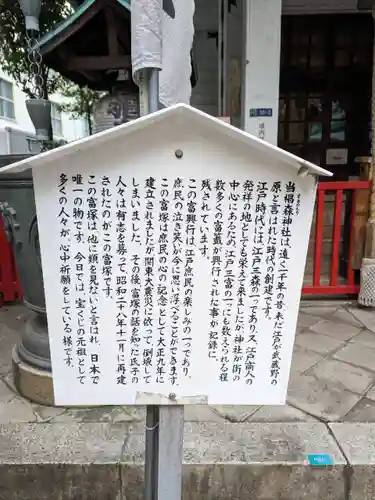 当椙森神社は、遠く一千年の昔、未だ江戸が武蔵野の
原と言はれた時代の創建です。
江戸時代には、江戸三森の一つであり、又江戸商人の
発祥の地としても栄えて来ましたが、神社が街の
中心にあるため、江戸三富の一つにも数えられる程
数多くの富籤が興行された事が記録に
残されています。
この富興行は、江戸庶民の楽しみの一つであり、
庶民の泣き笑いが今に思い浮べることができます。
この富塚は、庶民の心の記念として大正九年に
建立されましたが関東大震災に依って、倒壊して
しまいました。その後、富塚の話を知った氏子の
人々は有志を募って、昭和二十八年十一月に再建
されたのがこの富塚です。
この富塚は、他に類を見ないと言はれ、日本で
唯一の物です。今日では、宝くじの元祖として
多くの人々が、心中祈願をしている様です。